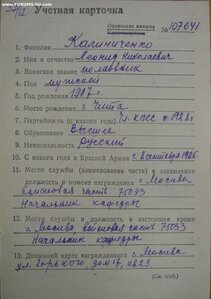 www.FORUMS-SU.com
Учетная карточка
Орденская книжка
№ 107641
1. Фамилия Калиниченко
2. Имя и отчество Леонид Николаевич
3. Воинское звание полковник
4. Пол мужской
5. Год рождения 1907 г.
6. Место рождения г. Чита
7. Партийность (с какого года) чл. КПСС с 1928 г.
8. Образование Высшее
9. Национальность русский
10. С какого года в Красной Армии с сентября 1925
11. Место службы (наименование части) и занимаемая
должность в момент награждения г. Москва
войсковая часть 75033
Начальник кафедры
12. Место службы и должность в настоящее время
г. Москва, войсковая часть 75033
Начальник кафедры
13. Домашний адрес награжденного г. Москва
ул. Горького дом 17, кв.
(См. н/об.)